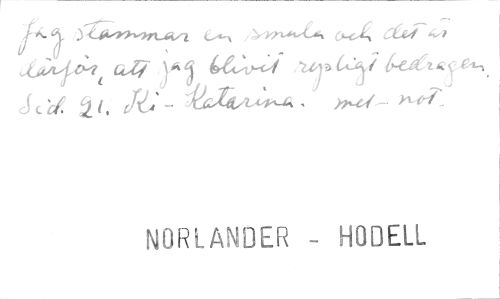 Jag stammar en smula och det är
därför, att jag blivit rysligt bedragen.
Sid. 21. Ki-Katarina. mel-not.
NORLANDER - HODELL